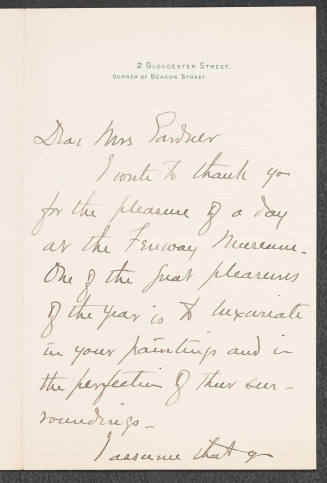 2 GLOUCESTER STREET.
CORNER OF BEACON STREET.
Dear Mrs Gardner
I write to thank you
for the pleasure of a day
at the Fenway Museum.
One of the great pleasures
of the year is to luxuriate
in your paintings and in
the perfection of their sur-
roundings.
I assume that